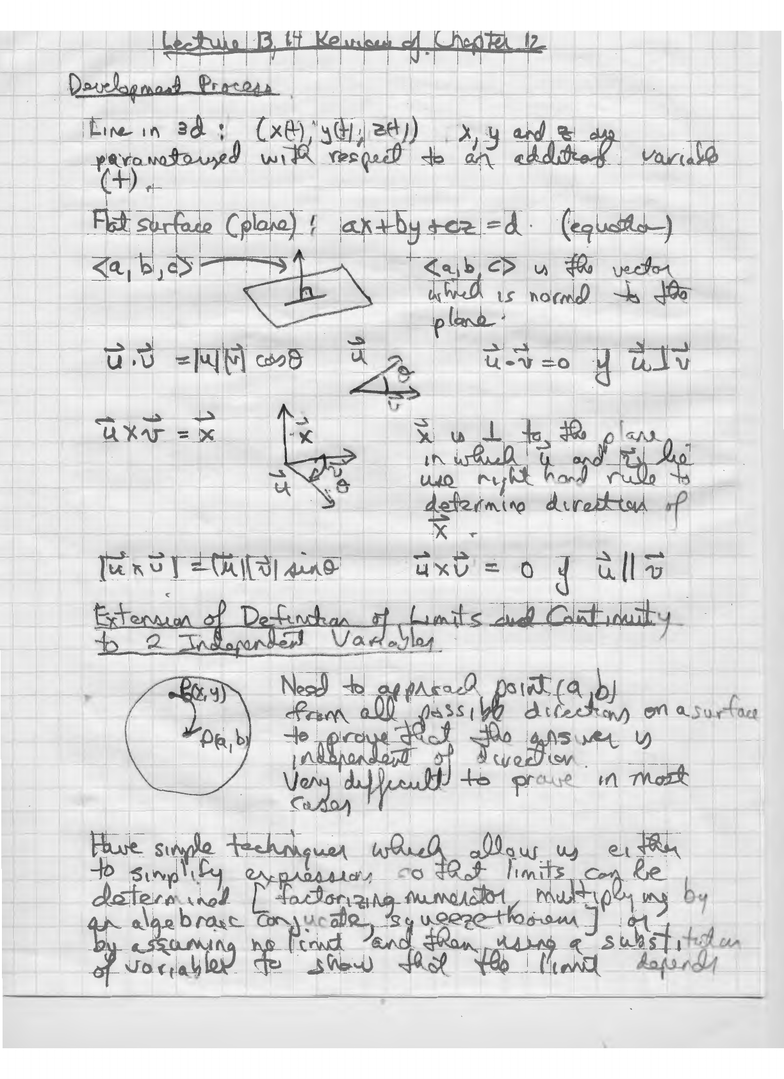 Lecture 13, 14 Review of Chapter 12
Development Process
Line in 3d : (x(t), y(t), z(t)) x, y and z are
parameterized with respect to an additional variable
(t).
Flat surface (plane) : ax+by+cz = d. (equation)
<a, b, c> <a, b, c> is the vector
which is normal to the
plane.
u⃗ · v⃗ = |u||v⃗| cos θ u⃗ θ v⃗ u⃗ · v⃗ = 0 if u⃗ ⊥ v⃗
u⃗ × v⃗ = x⃗ x⃗ u⃗ v⃗ θ x⃗ is ⊥ to the plane
in which u⃗ and v⃗ lie
use right hand rule to
determine direction of
x⃗.
|u⃗ × v⃗| = |u⃗||v⃗| sin θ u⃗ × v⃗ = 0 if u⃗ || v⃗
Extension of Definition of Limits and Continuity
to 2 Independent Variables
(x, y) Need to approach point (a, b)
P(a, b) from all possible directions on a surface
to prove that the answer is
independent of direction.
Very difficult to prove in most
cases
Have simple techniques which allow us either
to simplify expression so that limits can be
determined [factorizing numerator, multiplying by
an algebraic conjugate, squeeze theorem] or
by assuming no limit and then using a substitution
of variables to show that the limit depends